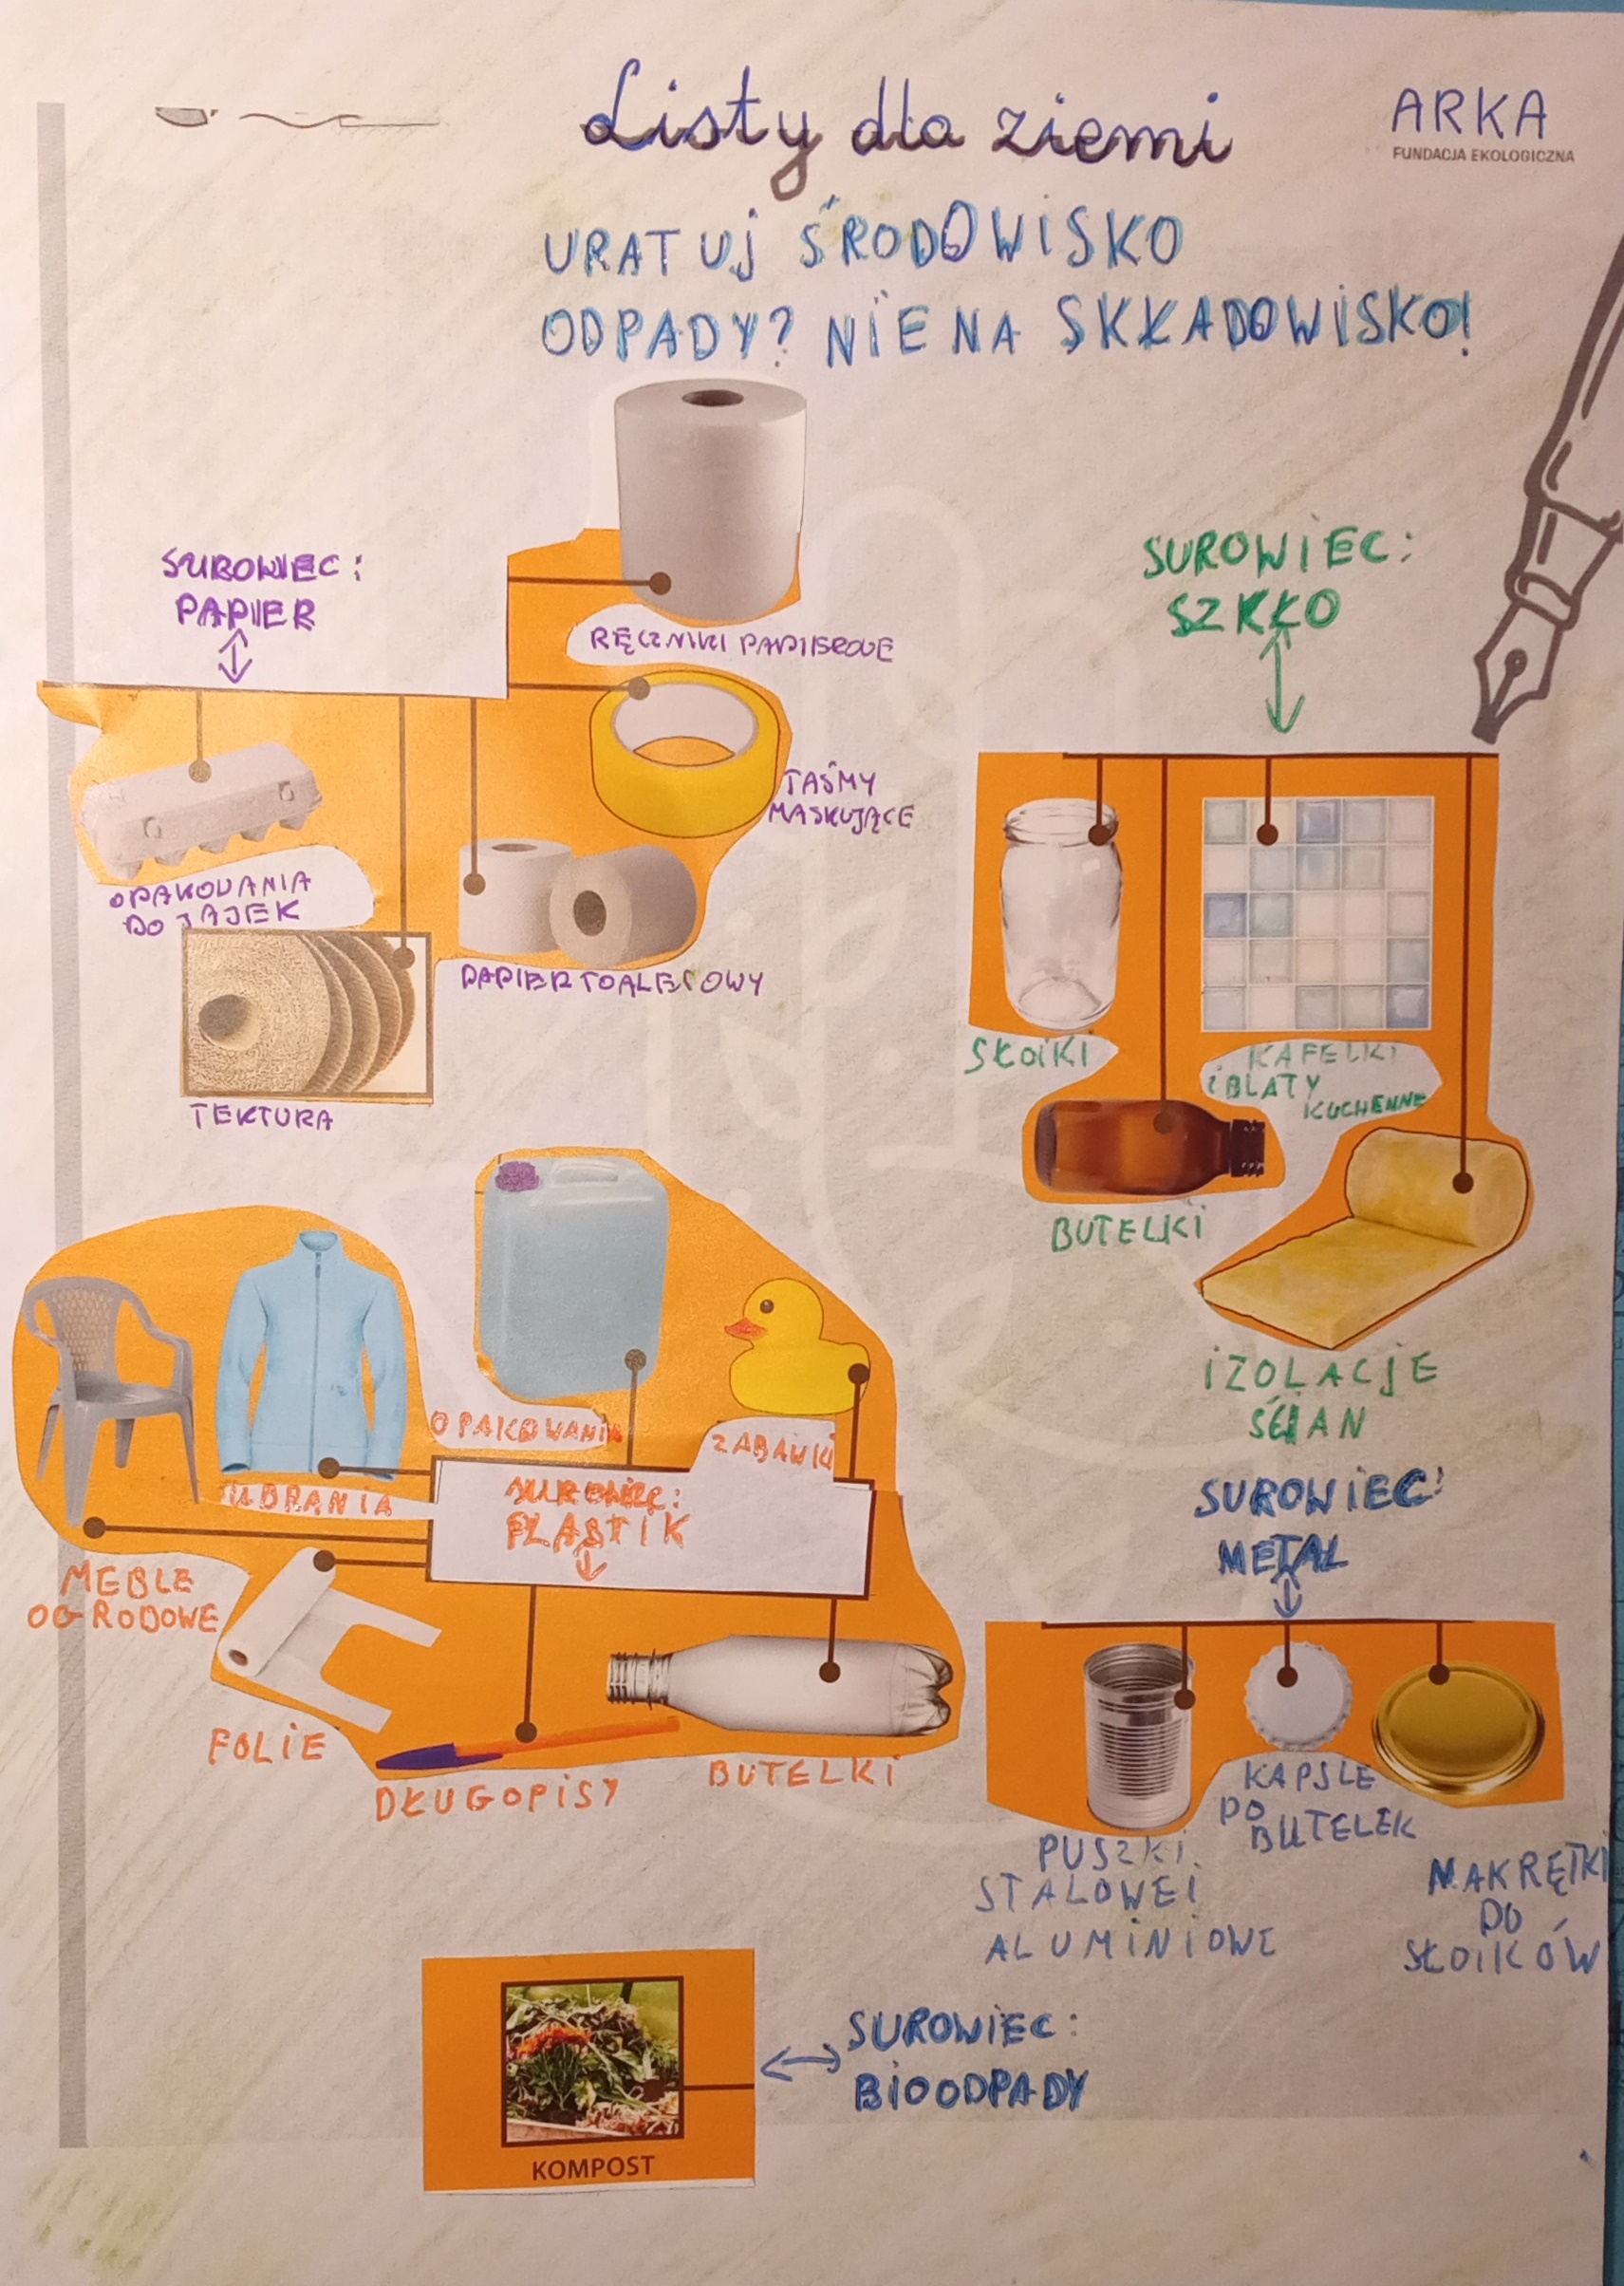 Listy dla ziemi
ARKA
FUNDACJA EKOLOGICZNA
URATUJ ŚRODOWISKO
ODPADY? NIE NA SKŁADOWISKO!
SUROWIEC:
PAPIER
RĘCZNIKI PAPIEROWE
TAŚMY
MASKUJĄCE
OPAKOWANIA
DO JAJEK
PAPIER TOALETOWY
TEKTURA
SUROWIEC:
SZKŁO
SŁOIKI
KAFELKI
i BLATY
KUCHENNE
BUTELKI
IZOLACJE
ŚCIAN
OPAKOWANIA
ZABAWKI
UBRANIA
SUROWIEC:
PLASTIK
MEBLE
OGRODOWE
FOLIE
DŁUGOPISY
BUTELKI
SUROWIEC:
METAL
KAPSLE
DO
BUTELEK
PUSZKI
STALOWE I
ALUMINIOWE
NAKRĘTKI
DO
SŁOIKÓW
SUROWIEC:
BIOODPADY
KOMPOST